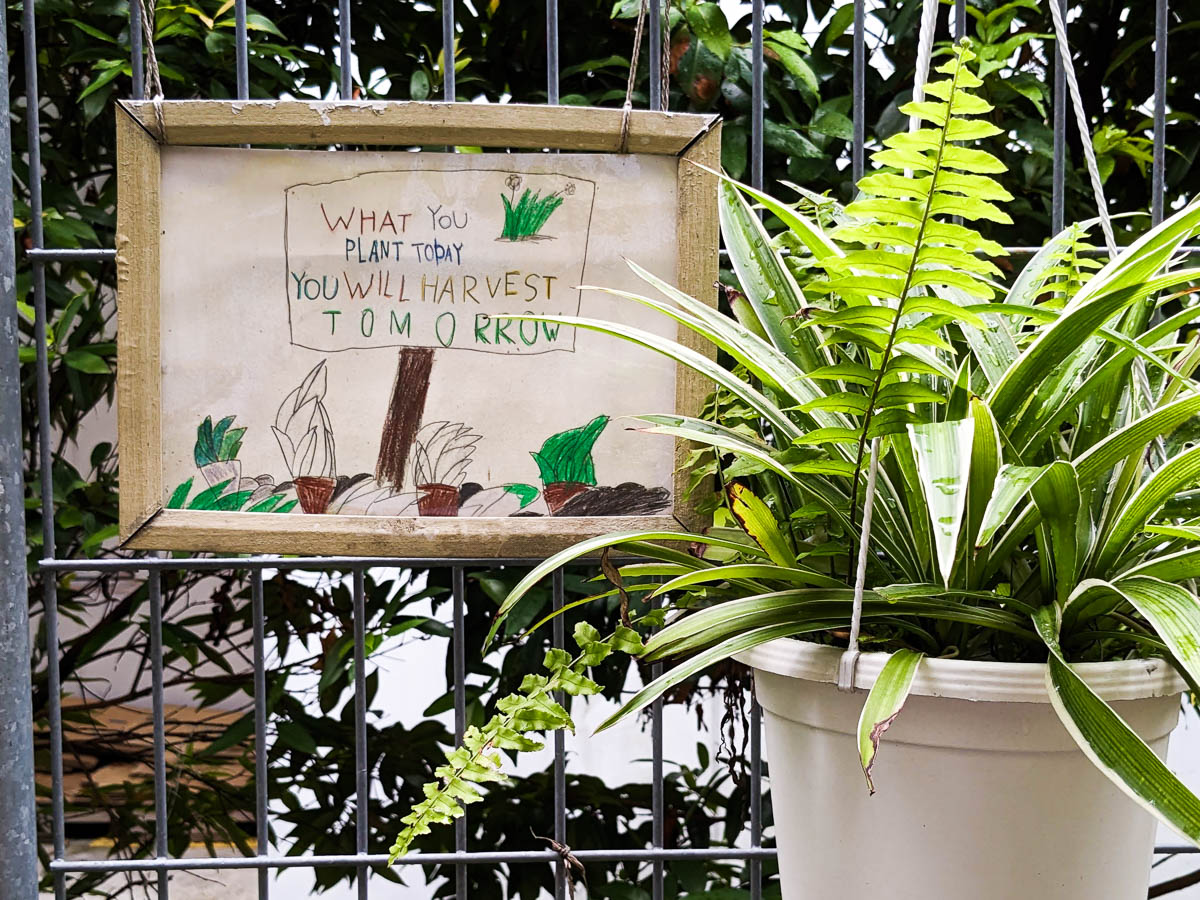 WHAT YOU
PLANT TODAY
YOU WILL HARVEST
TOMORROW